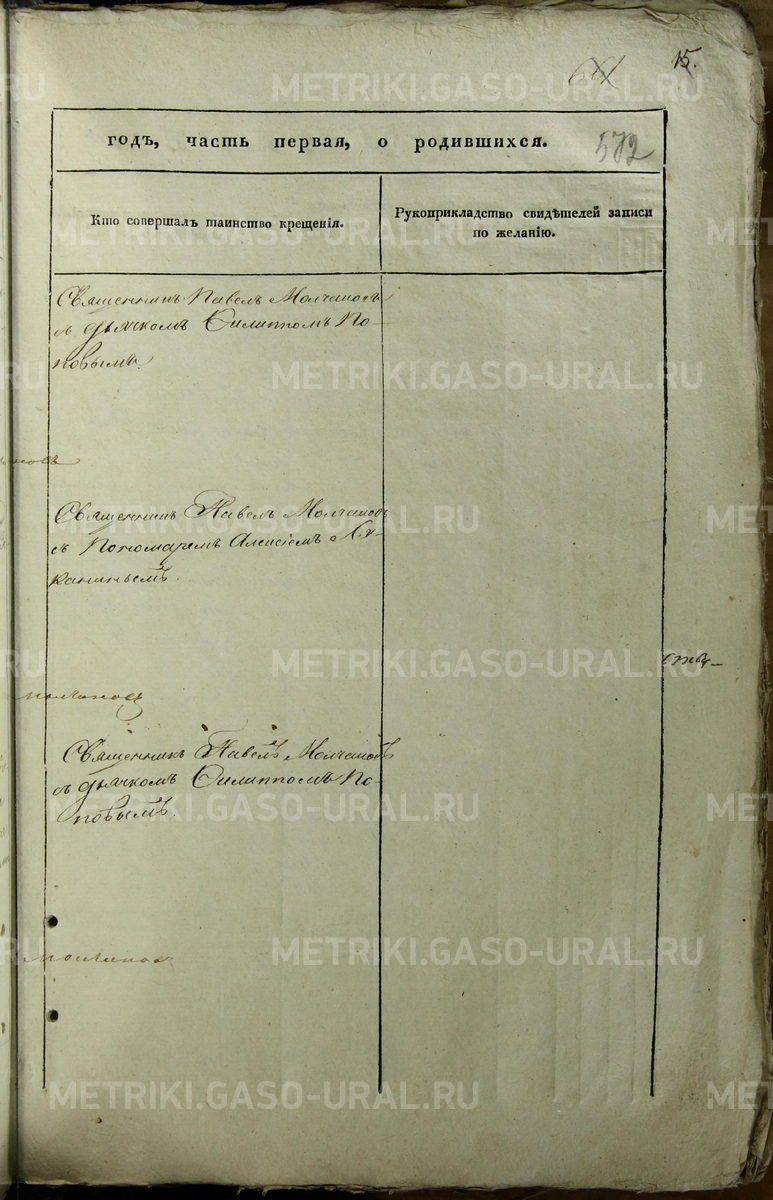 15.
572
годъ, часть первая, о родившихся.
Кто совершалъ таинство крещенія.
Рукоприкладство свидѣтелей записи
по желанію.
Священникъ Павелъ Молчановъ
съ дьячкомъ Филиппомъ По-
повымъ.
Священникъ Павелъ Молчановъ
съ Пономаремъ Алексіемъ
Священникъ Павелъ Молчановъ
съ дьячкомъ Филиппомъ По-
повымъ.
METRIKI.GASO-URAL.RU